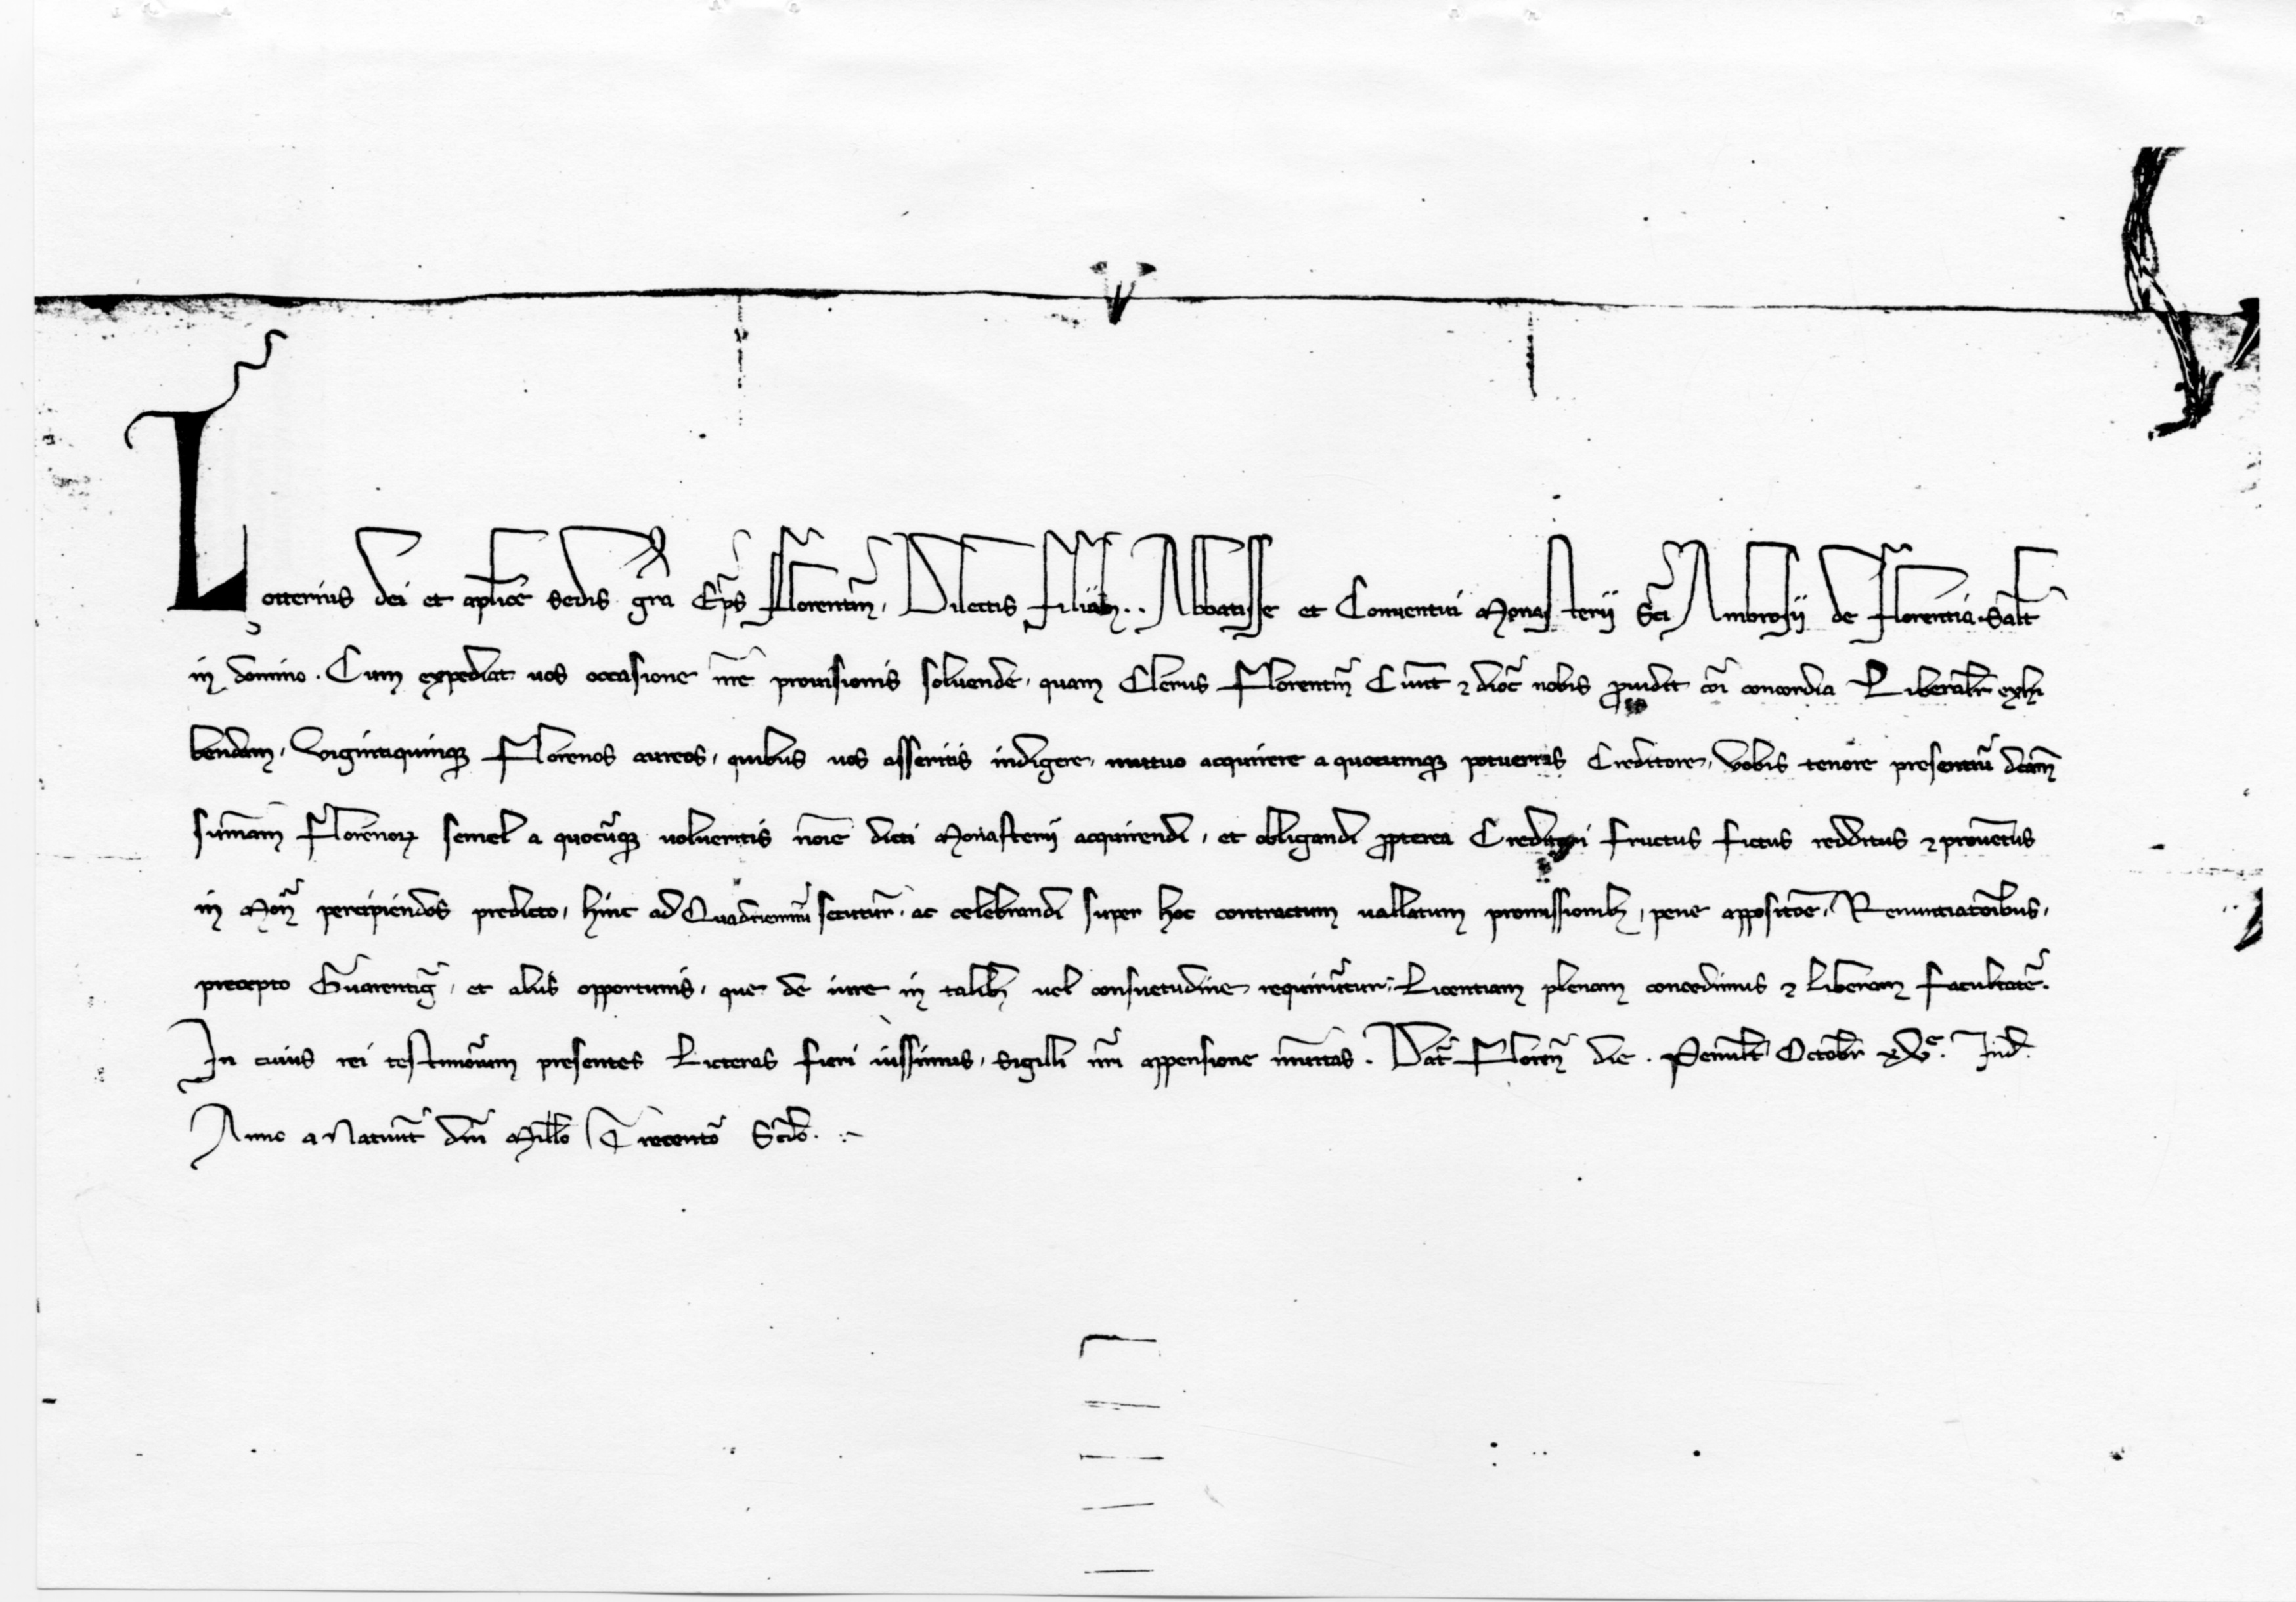 Lotterius dei et aplice sedis gra Eps Florentin, Dilectis Filiab; . . Abbatisse et Conventui Monasterii Sci Ambrosii de Florentia. Salt
in domino. Cum expediat vos occasione nre provisionis solvende, quam Clerus Florentin Civit ⁊ dioc nobis providit coi concordia Liberalr exhi
bendam, Vigintiquinq; Florenos aureos, quibus vos asseritis indigere, mutuo acquirere a quocumq; potueritis Creditore, Vobis tenore presentiu dcam
sumam Florenoꝝ semel a quocuq; volueritis noie dicti Monasterii acquirendi, et obligandi propterea Creditori fructus fictus redditus ⁊ proventus
in Mon percipiendos predicto, hinc ad Quadrienniu secutur, ac celebrandi super hoc contractum vallatum promissionib;, pene appositoe, Renuntiatoibus,
precepto Guarentig, et aliis opportunis, que de iure in talib; vel consuetudine requirutur, Licentiam plenam concedimus ⁊ liberam facultate.
In cuius rei testimoium presentes Licteras fieri iussimus, sigilli nri appensione munitas. Dat Floren die. Penult Octobr xve. Ind.
Anno a Nativit dni Millo Trecento Scdo.